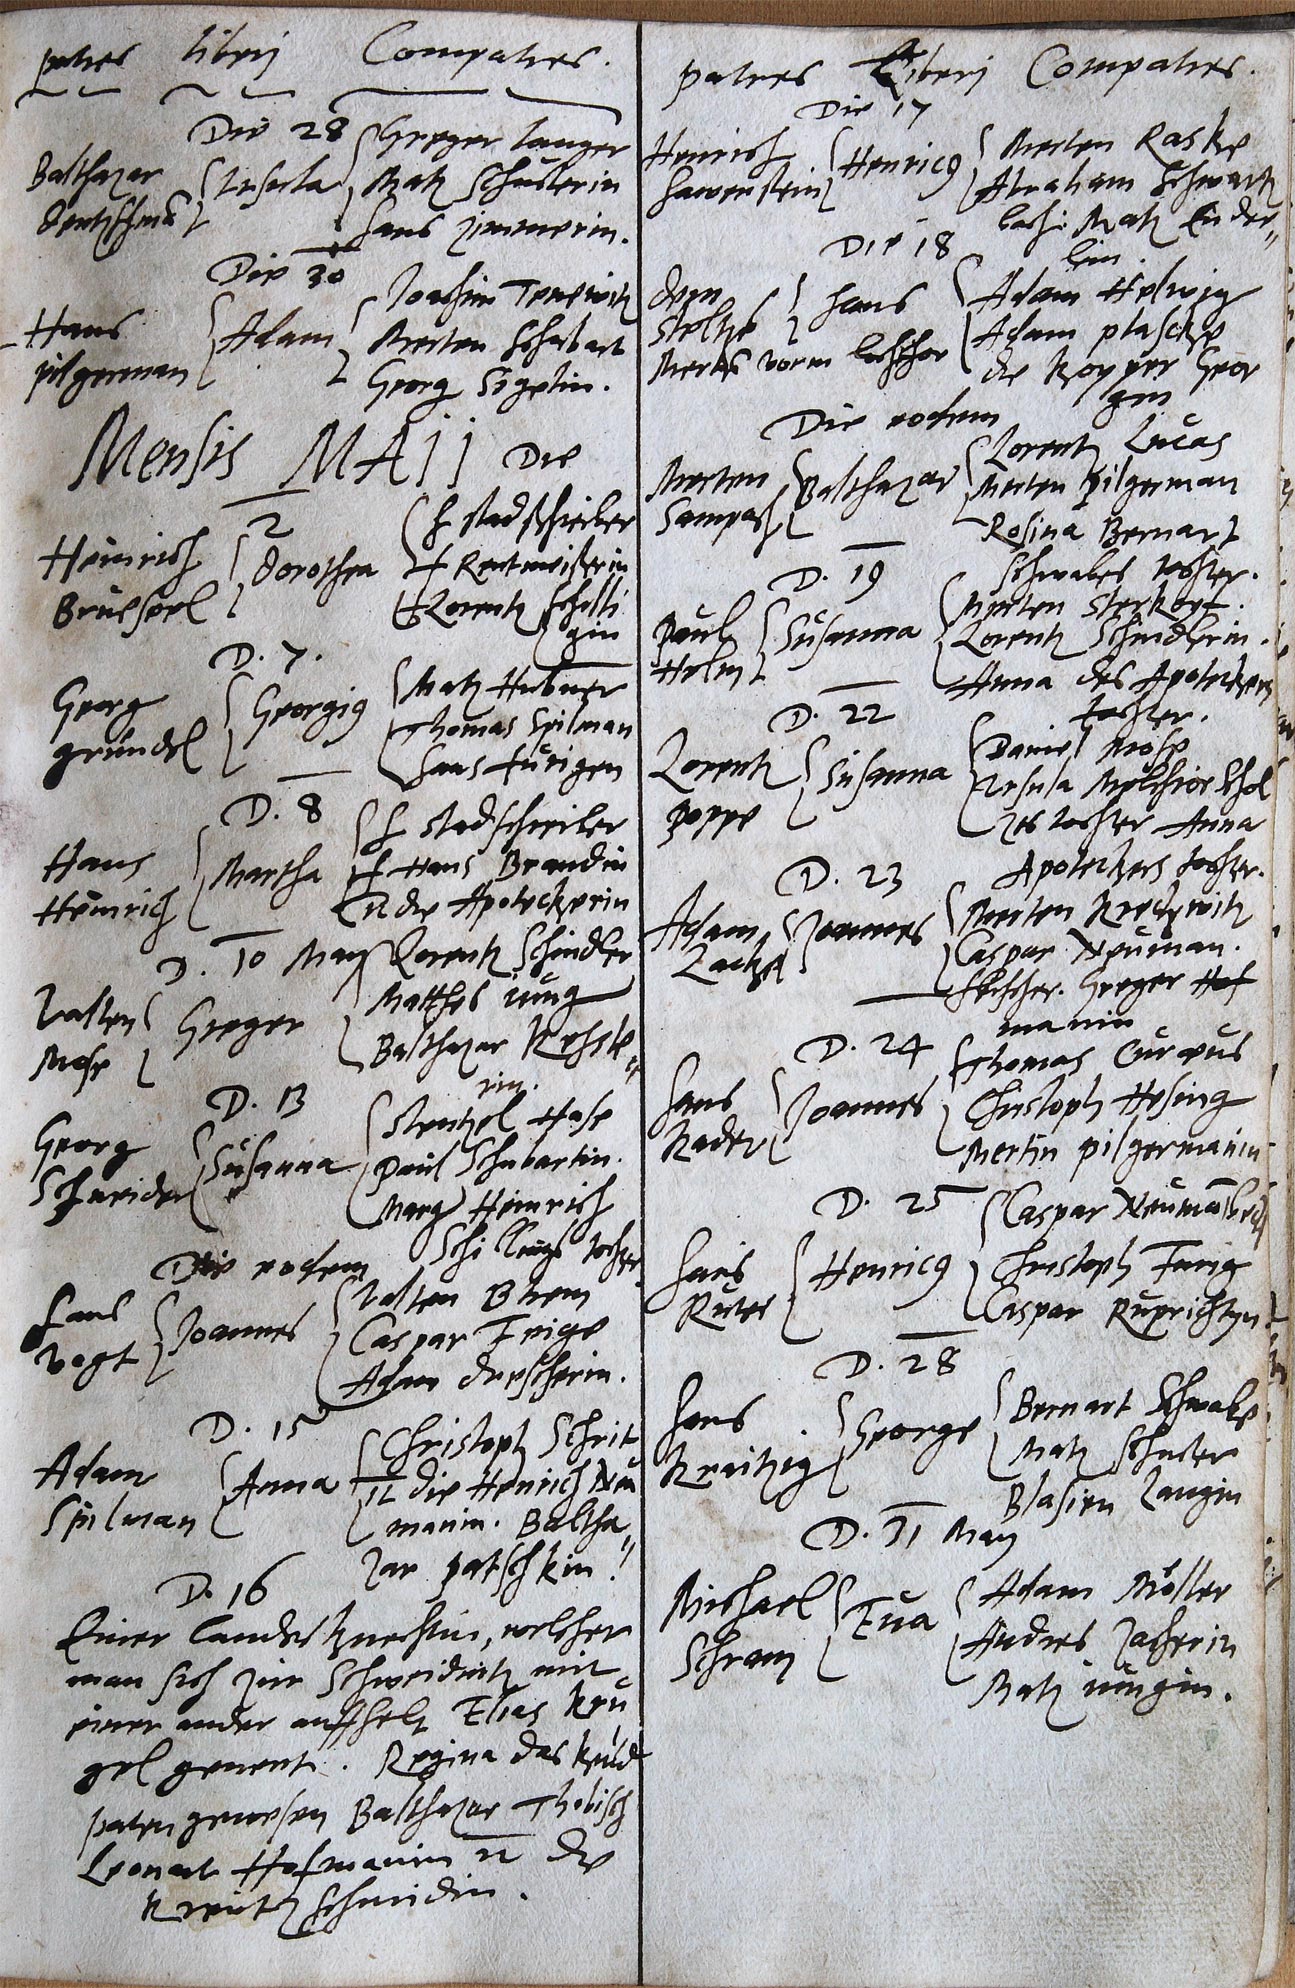 patres liberj Compatres.
Die 28
Balthazar
Ursula
Greger Langer
Matz Schusterin
Hans Zimmerin.
Die 30
Hans
pilgerman
Adam
Joachim
Merten Schubart
Georg Sigelin.
Mensis MAIj Die
2
Heinrich
Dorothea
H stadschreiber
H Rentmeisterin
Lorentz Scholtz
gin
D. 7.
Georg
gründel
Georgig
Matz Hubner
Thomas Spilman
Hans fürigen
D. 8
Hans
Heinrich
Martha
H stadschreiber
H Hans Brandin
die Apoteckerin
D. 10 May
Valten
Mose
Greger
Lorentz Schindler
Matthes iung
Balthazar
rin.
D. 13
Georg
Schneider
Susanna
Stentzel Hase
Paul Schubartin.
Marg Heinrich
Schillings tochter
Die eodem
Hans
Vogt
Joannes
Valten Brem
Caspar Feige
Adam drescherin.
D. 15
Adam
Spilman
Anna
Christoph Schrit
die Henrich Neu
manin. Baltha„
zar patschkin.
D. 16
Einer Landsknechtin, welcher
man sich zur Schweidnitz mit
einer ander auffhelt Elias Krü
gel genent. Regina das kind
paten gewesen Balthazar Thobisch
Leonart Hofmanin die
Kreutzschmidin.
patres Liberj Compatres.
Die 17
Henrich
Hawenstein
Henricg
Merten Raske
Abraham Schwartz
bach: Matz Ender„
lin
Die 18
Stoltze
Hans
Adam Helwig
Adam plaschke
die Kopper Geor
gin
Die eodem
Merten
Balthazar
Lorentz Lucas
Merten Pilgerman
Rosina Bernart
Schwabes tochter.
D. 19
Paul
Helm
Susanna
Merten Sterkorf.
Lorentz Schindlerin.
Anna des Apoteckers
tochter.
D. 22
Lorentz
Poppe
Susanna
Daniel Mose
Ursula Melchior Schol
zes tochter Anna
Apoteckers tochter.
D. 23
Adam
Lacke
Joannes
Merten Kredewitz
Caspar Neuman.
Fleischer. Greger Hof
manin
D. 24
Hans
Kader
Joannes
Thomas Curæus
Christoph Hesing
Mertin pilgermanin
D. 25
Hans
Ruter
Henricg
Caspar Neuman
Christoph Feirig
Caspar Ruprichtyn
D. 28
Hans
Kreitzig
George
Bernart Schwabe
Matz Schuster
Blasien Langin
D. 31 May
Michael
Schram
Eua
Adam Möller
Andres Zacherin
Matz iungin.